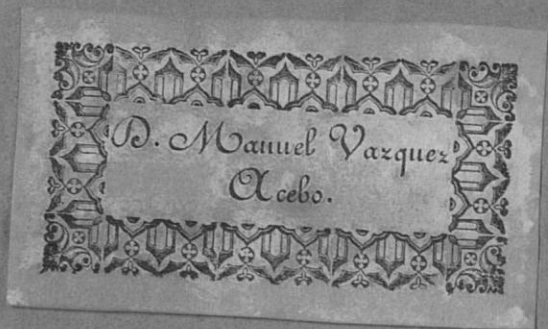 D. Manuel Vazquez
Acebo.